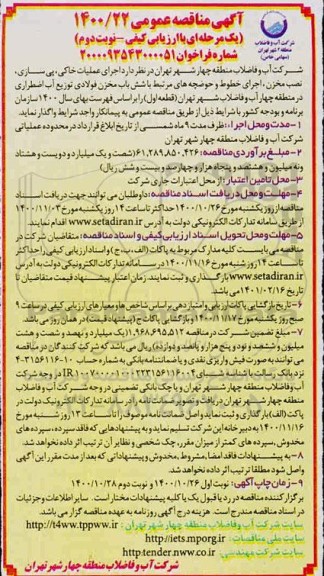 آگهی مناقصه عمومی ۱۴۰۰/۲۲
(یک مرحله‌ای با ارزیابی کیفی - نوبت دوم)
شماره فراخوان ۲۰۰۰۰۹۳۵۴۳۰۰۰۰۵۱
شرکت آب و فاضلاب
منطقه ۴ شهر تهران
(سهامی خاص)
شرکت آب و فاضلاب منطقه چهار شهر تهران در نظر دارد اجرای عملیات خاکی، پی‌سازی،
نصب مخزن، اجرای خطوط و حوضچه های مرتبط با شش باب مخزن فولادی توزیع آب اضطراری
در منطقه چهار آب و فاضلاب شهر تهران (قطعه اول) را بر اساس فهرست بهای سال ۱۴۰۰ سازمان
برنامه و بودجه کشور با شرایط ذیل از طریق مناقصه عمومی به پیمانکار واجد شرایط واگذار نماید.
۱- مدت و محل اجرا: ظرف مدت ۹ ماه شمسی از تاریخ ابلاغ قرارداد در محدوده عملیاتی
منطقه چهار شهر تهران
۲- مبلغ برآوردی مناقصه: ۶۱,۲۸۹,۸۵۰,۴۲۶ (شصت و یک میلیارد و دویست و هشتاد
ونه میلیون و هشتصد و پنجاه هزار و چهارصد و بیست و شش ریال)
۳- محل تامین اعتبار: از محل اعتبارات جاری شرکت
۴- مهلت و محل دریافت اسناد مناقصه: داوطلبان می توانند جهت دریافت اسناد
مناقصه از روز یکشنبه مورخ ۱۴۰۰/۱۰/۲۶ حداکثر تا ساعت ۱۴ روز یکشنبه مورخ ۱۴۰۰/۱۱/۰۳
از طریق سامانه تدارکات الکترونیکی دولت به آدرس www.setadiran.ir اقدام نمایند.
۵- مهلت و محل تحویل اسناد ارزیابی کیفی و اسناد مناقصه: متقاضیان شرکت در
مناقصه می بایست کلیه مدارک مربوط به پاکات (الف، ب، ج) و اسناد ارزیابی کیفی را حداکثر
تا ساعت ۱۴ روز شنبه مورخ ۱۴۰۰/۱۱/۱۶ در سامانه تدارکات الکترونیکی دولت به آدرس
www.setadiran.ir بارگذاری و ثبت نمایند. زمان اعتبار پیشنهاد قیمت متقاضیان تا
تاریخ ۱۴۰۱/۰۲/۱۶ می باشد.
۶- تاریخ بازگشایی پاکات ارزیابی و امتیازدهی بر اساس شاخص ها و معیارهای ارزیابی کیفی در ساعت ۹
صبح روز یکشنبه مورخ ۱۴۰۰/۱۱/۱۷ و بازگشایی پاکات ج (پیشنهاد قیمت) در همان روز می باشد.
۷- مبلغ تضمین شرکت در مناقصه ۱,۹۶۸,۶۹۵,۵۱۲ (یک میلیارد و نهصد و شصت و هشت
میلیون و ششصد و نود و پنج هزار و پانصد و دوازده) ریال می باشد که شرکت کنندگان در مناقصه
می توانند به صورت فیش واریزی نقدی و یا ضمانتنامه بانکی به شماره حساب ۱۰-۳۱۵۶۱۱۶-۴
نزد بانک
آب و فاضلاب منطقه چهار شهر تهران و یا چک بانکی تضمینی در وجه شرکت آب و فاضلاب
پاکت (الف) بارگذاری و ثبت نماید و اصل ضمانت نامه موصوف را تا ساعت ۱۳ روز شنبه مورخ
۱۴۰۰/۱۱/۱۶ به دبیرخانه این شرکت تسلیم نماید و به پیشنهادهایی که فاقد سپرده، سپرده های
مخدوش، سپرده های کمتر از میزان مقرر، چک شخصی و نظایر آن ترتیب اثر داده نخواهد شد.
۸- به پیشنهادات فاقد امضا، مشروط، مخدوش و پیشنهاداتی که بعد از مدت مقرر این آگهی
واصل شود مطلقا ترتیب اثر داده نخواهد شد.
۹- زمان چاپ آگهی: نوبت اول ۱۴۰۰/۱۰/۲۶ و نوبت دوم ۱۴۰۰/۱۰/۲۸
برگزار کننده مناقصه در رد یا قبول یک یا کلیه پیشنهادات مختار است. سایر اطلاعات و جزئیات
در اسناد مناقصه مندرج است. هزینه درج آگهی روزنامه به عهده مناقصه گزار می باشد.
سایت شرکت آب و فاضلاب منطقه چهار شهر تهران: http://t4ww.tppww.ir
سایت ملی مناقصات: http://iets.mporg.ir
سایت شرکت مهندسی: http:tender.nww.co.ir
شرکت آب و فاضلاب منطقه چهار شهر تهران